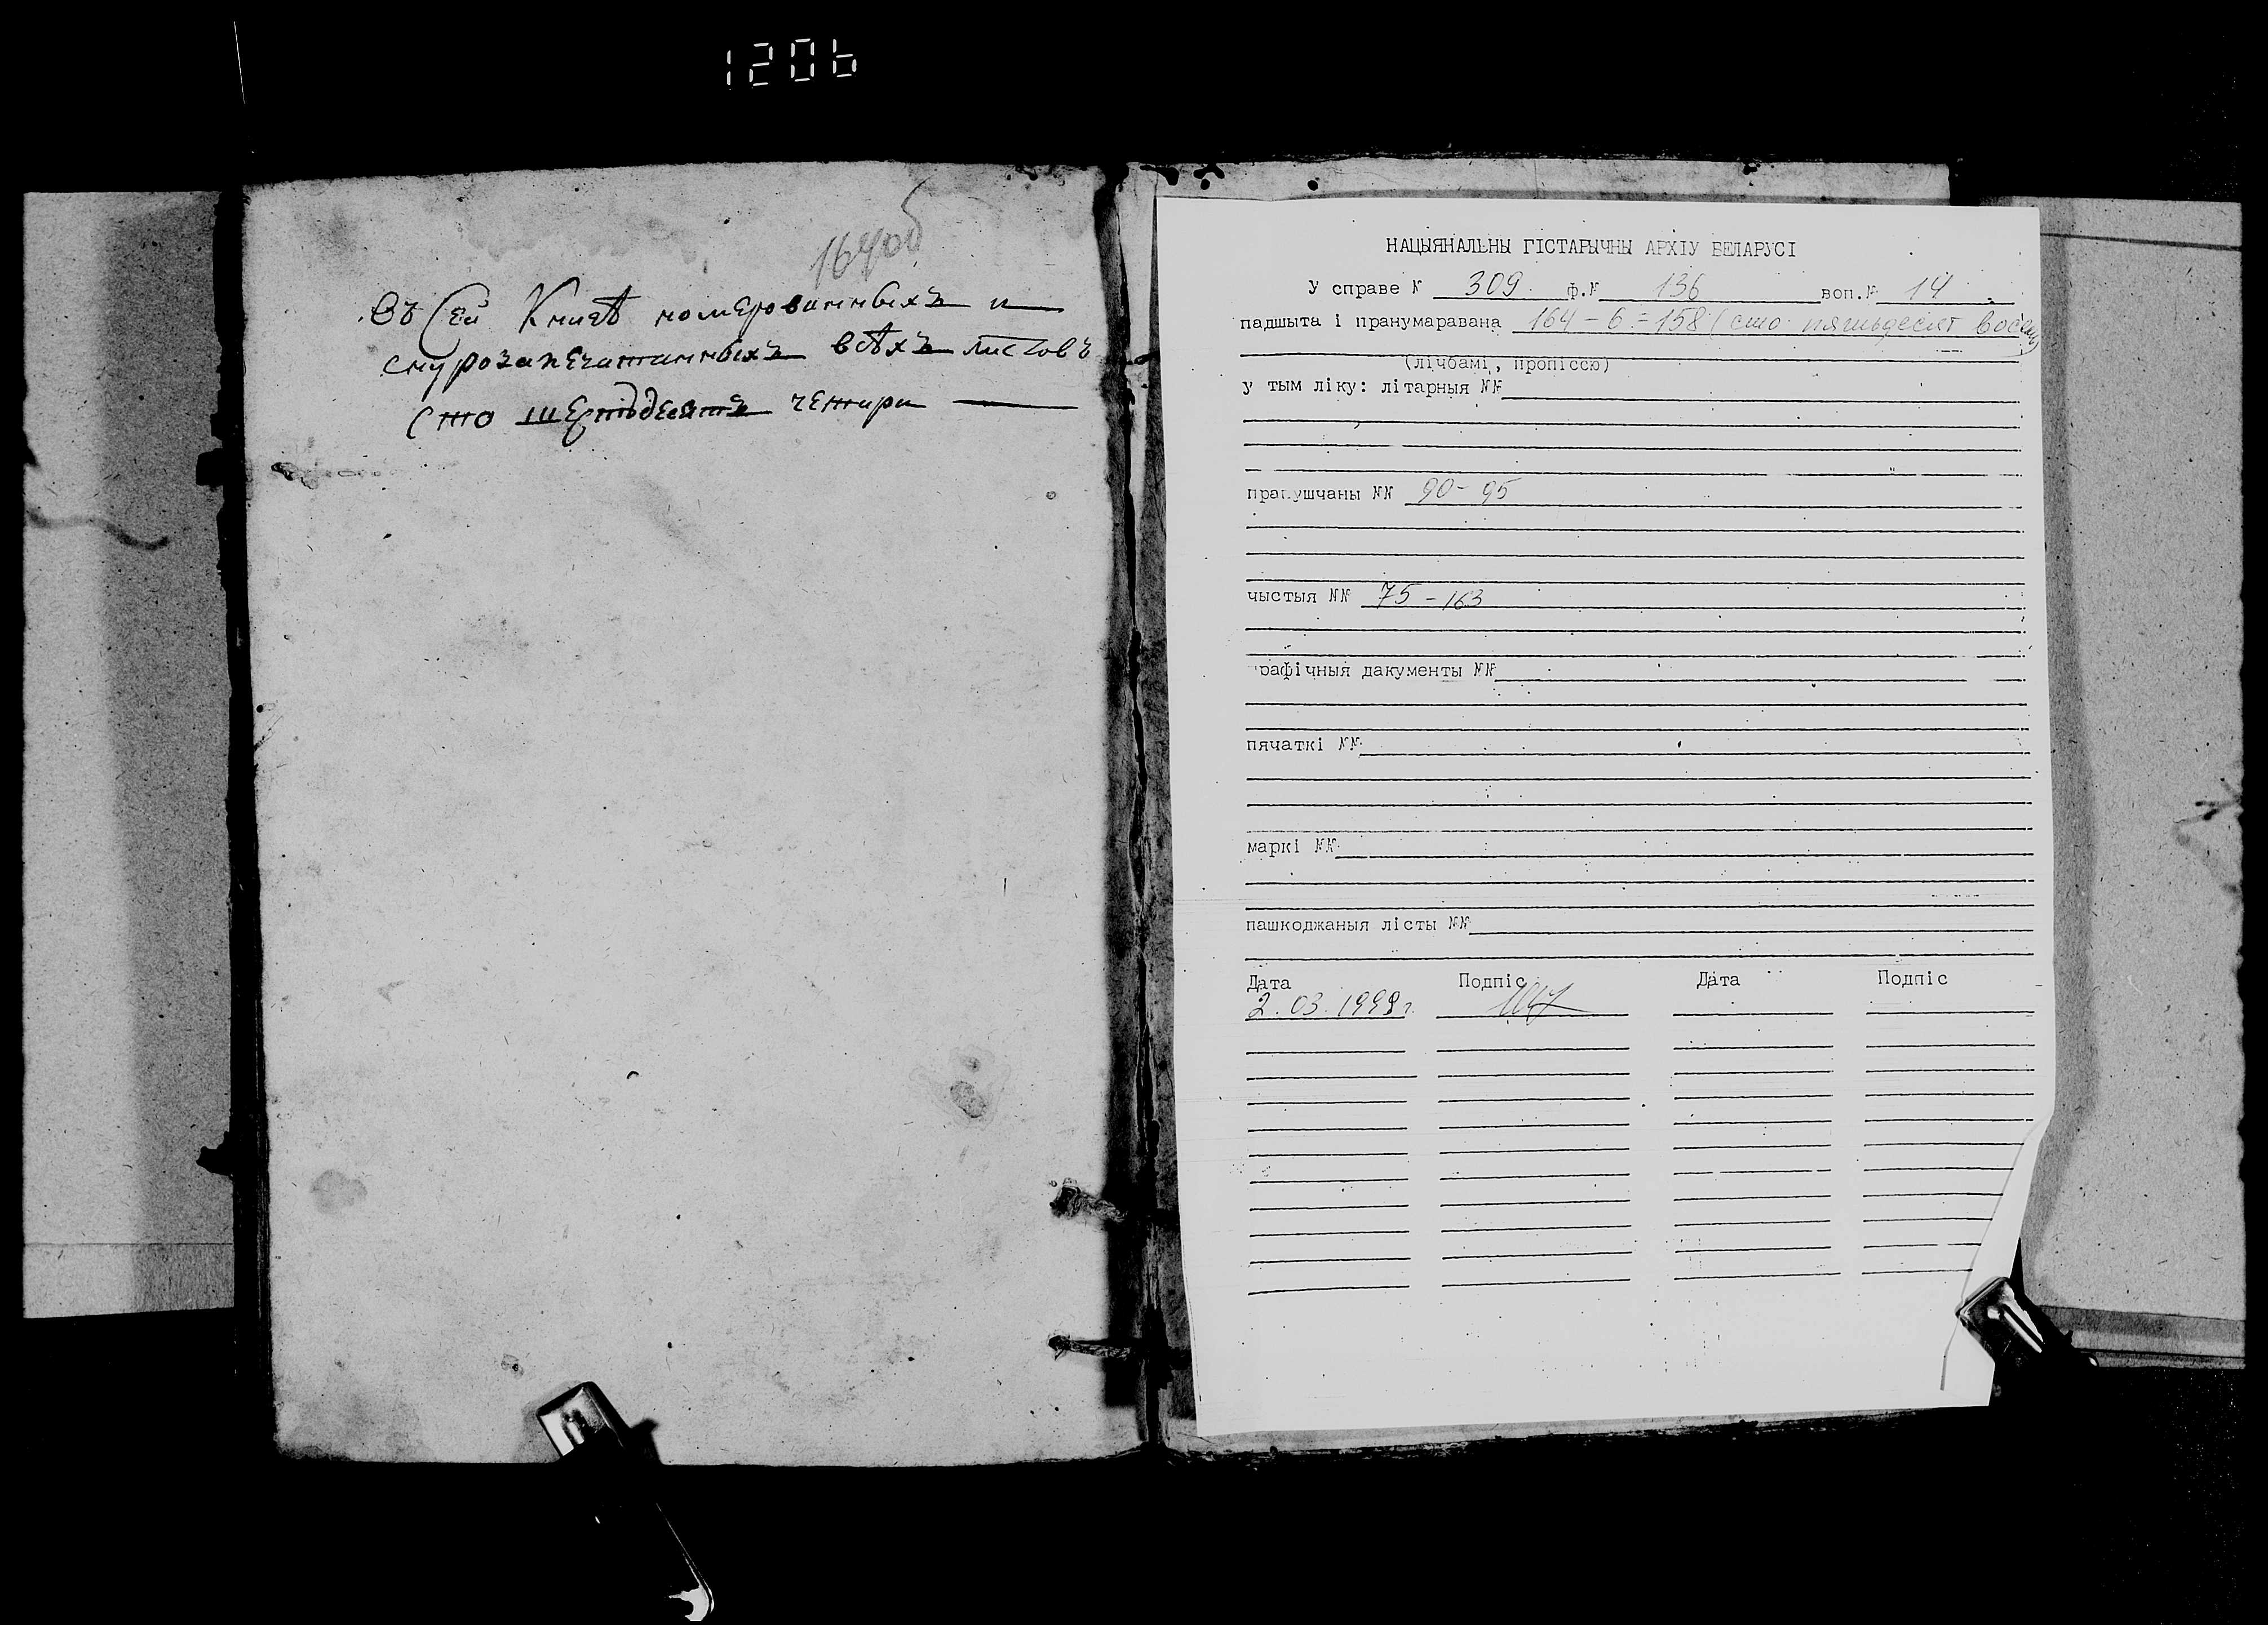 1206
164об
Въ Сей Книгѣ номерованныхъ и
снурозапечатанныхъ всѣхъ листовъ
сто шестьдесятъ четири
НАЦЫЯНАЛЬНЫ ГІСТАРЫЧНЫ АРХІУ БЕЛАРУСІ
У справе № 309. ф.№ 136 воп.№ 14
падшыта і пранумаравана 164 - 6 = 158 (сто пятьдесят восемь)
(лічбамі, пропіссю)
у тым ліку: літарныя №№
прапушчаны №№ 90-95
чыстыя №№ 75-163
графічныя дакументы №№
пячаткі №№
маркі №№
пашкоджаныя лісты №№
Дата Подпіс Дата Подпіс
2.03.1999г.